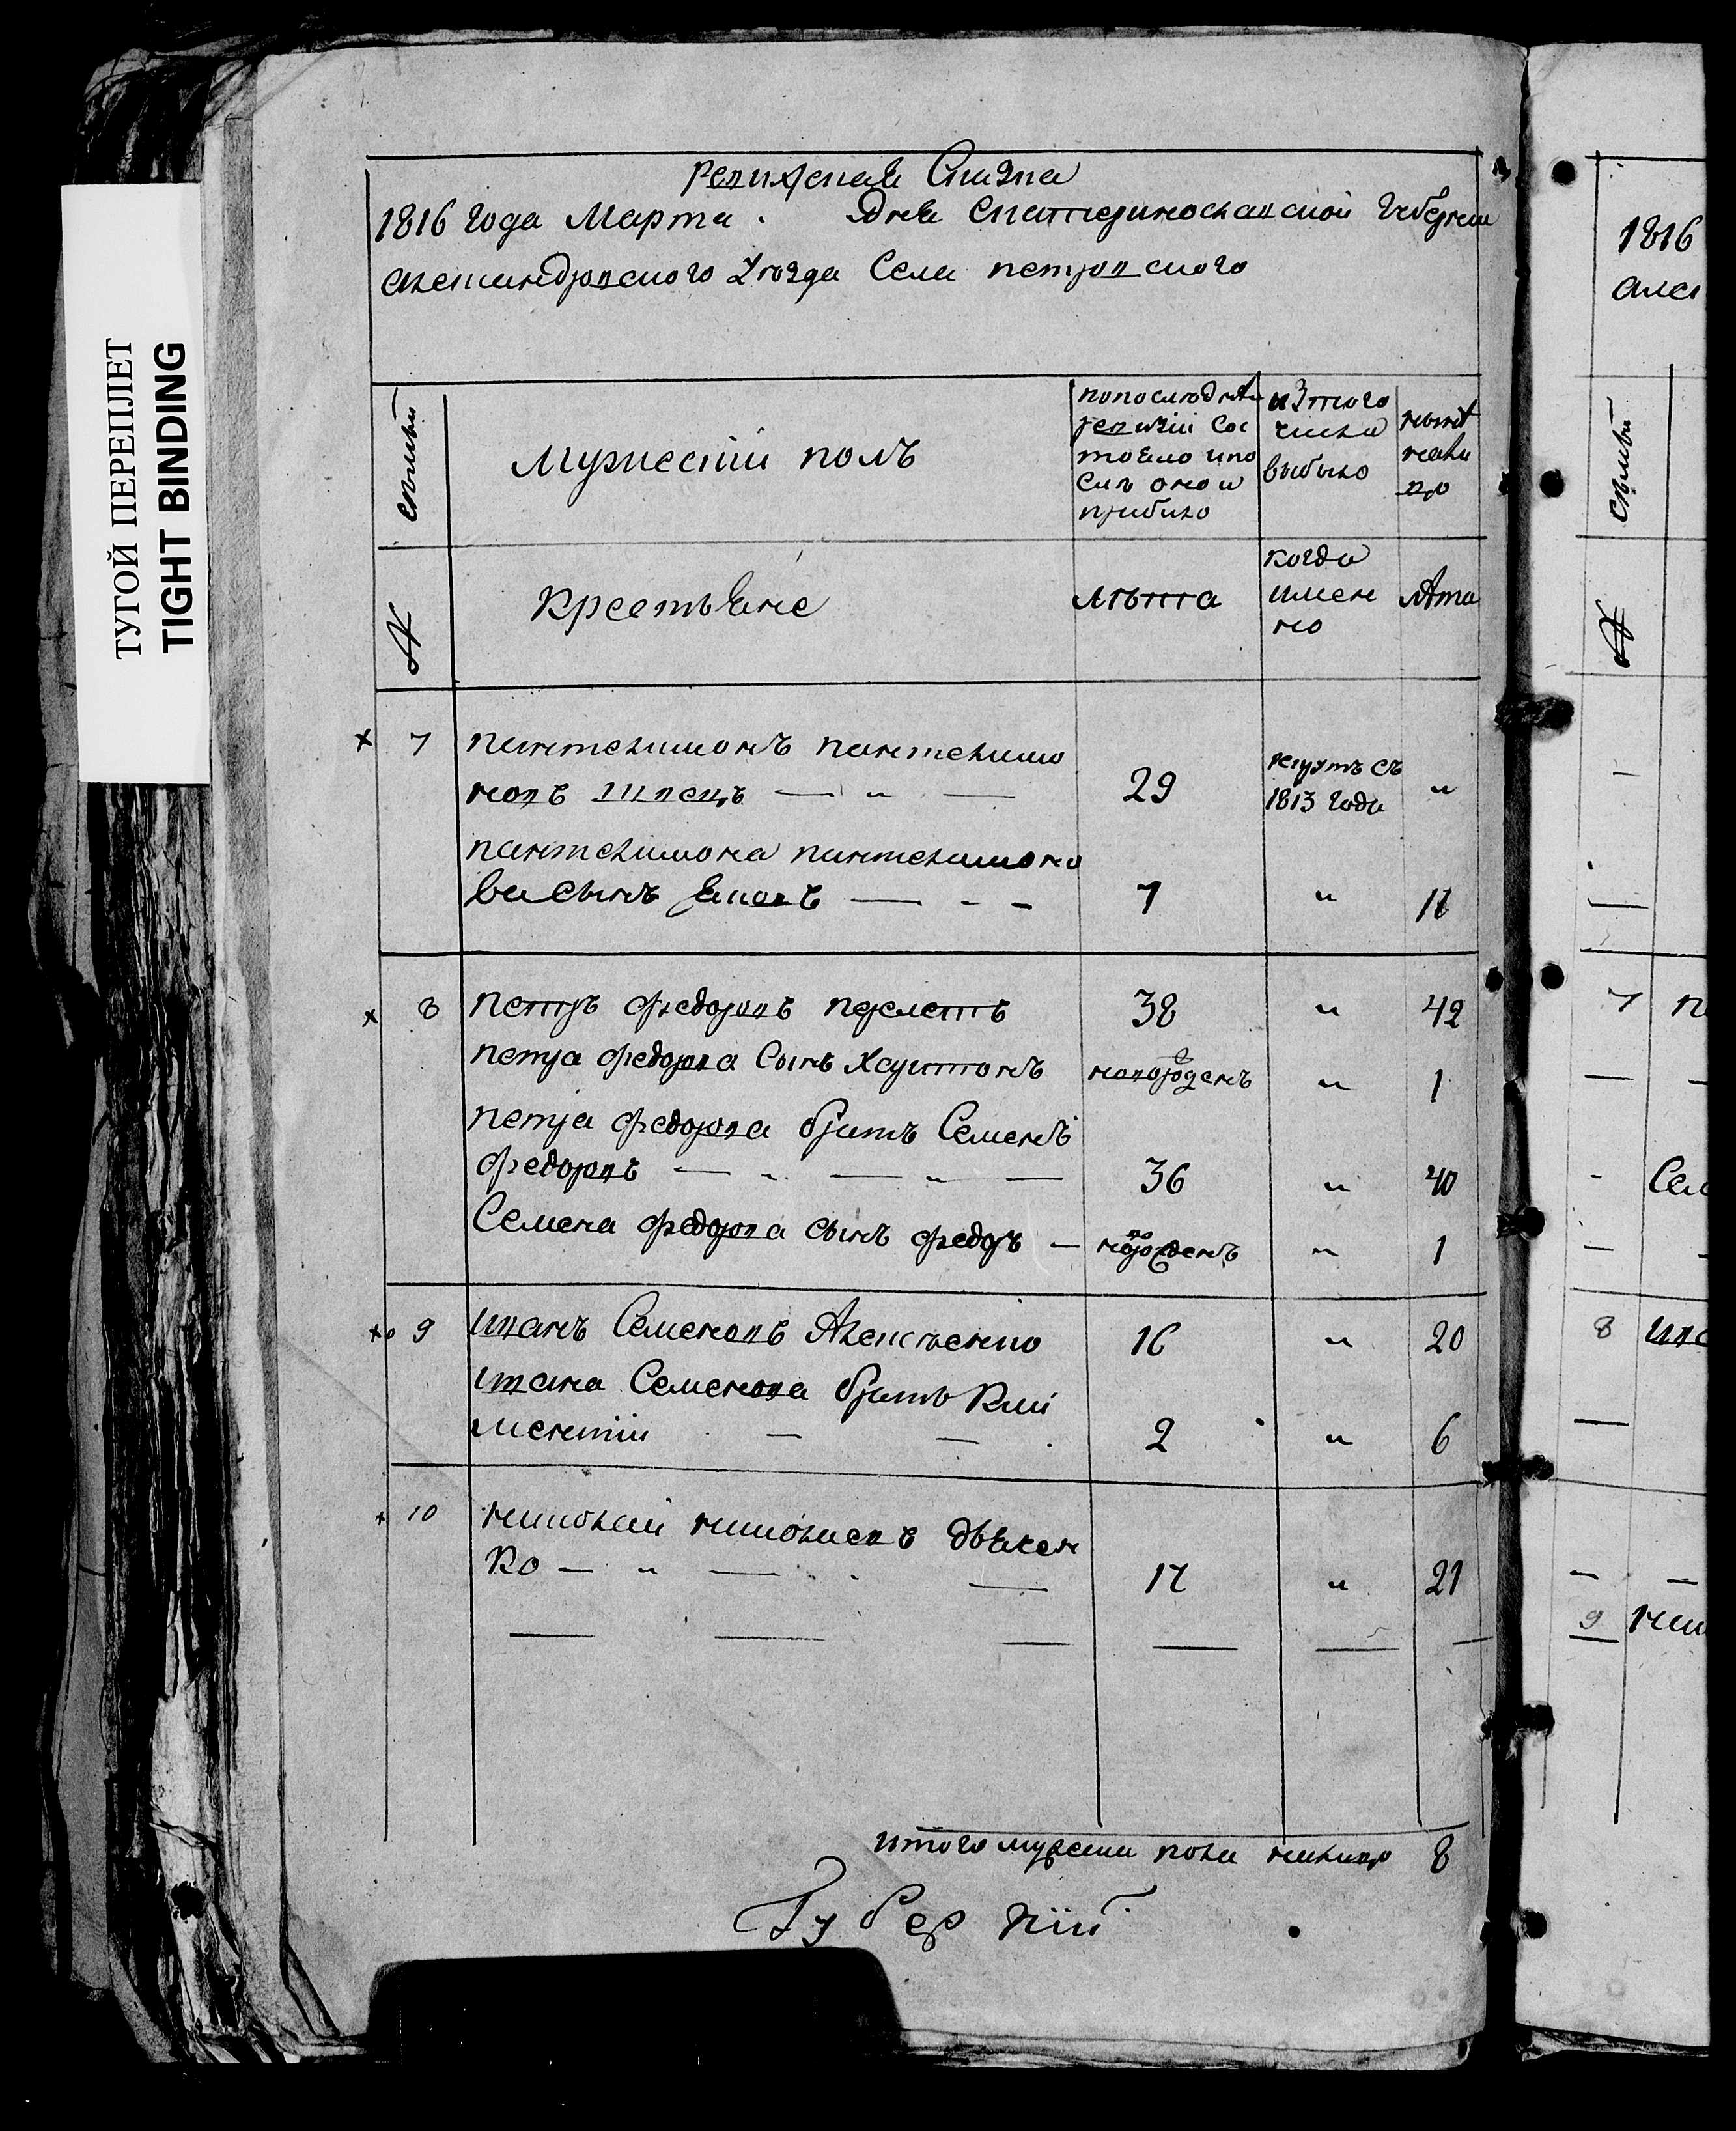 ТУГОЙ ПЕРЕПЛЕТ
TIGHT BINDING
ревижская Сказка
1816 Года Марта . Дня екатеринославской Губернии
александровского Уезда Села петровского
семьи
Мужеский полъ
попоследней
ревизии Сос
тояло ипо
слъ оной
прибыло
изтого
числа
выбыло
ныне
нали
цо
№
Крестьяне
лѣта
когда
имен
но
лета
7 пантелимонъ пантелимо
новъ швецъ — " — 29 1813 Года "
пантелимона пантелимоно
ва Сынъ Яковъ — - - 7 " 11
8 петръ федоровъ 38 " 42
петра федорова Сынъ Харитонъ новорожденъ " 1
петра федорова братъ Семенъ
федоровъ — " — " — 36 " 40
Семена федорова сынъ федоръ — новорожденъ " 1
9 иванъ Семеновъ Алексѣенко 16 " 20
ивана Семенова братъ Кли
ментий — — 2 " 6
10 николай николаевъ дьячен
ко — " — — 17 " 21
итого мужеска пола налицо 8
Губер ний
1816
алек
семьи
№
7 п
Сем
8 ива
9 ник